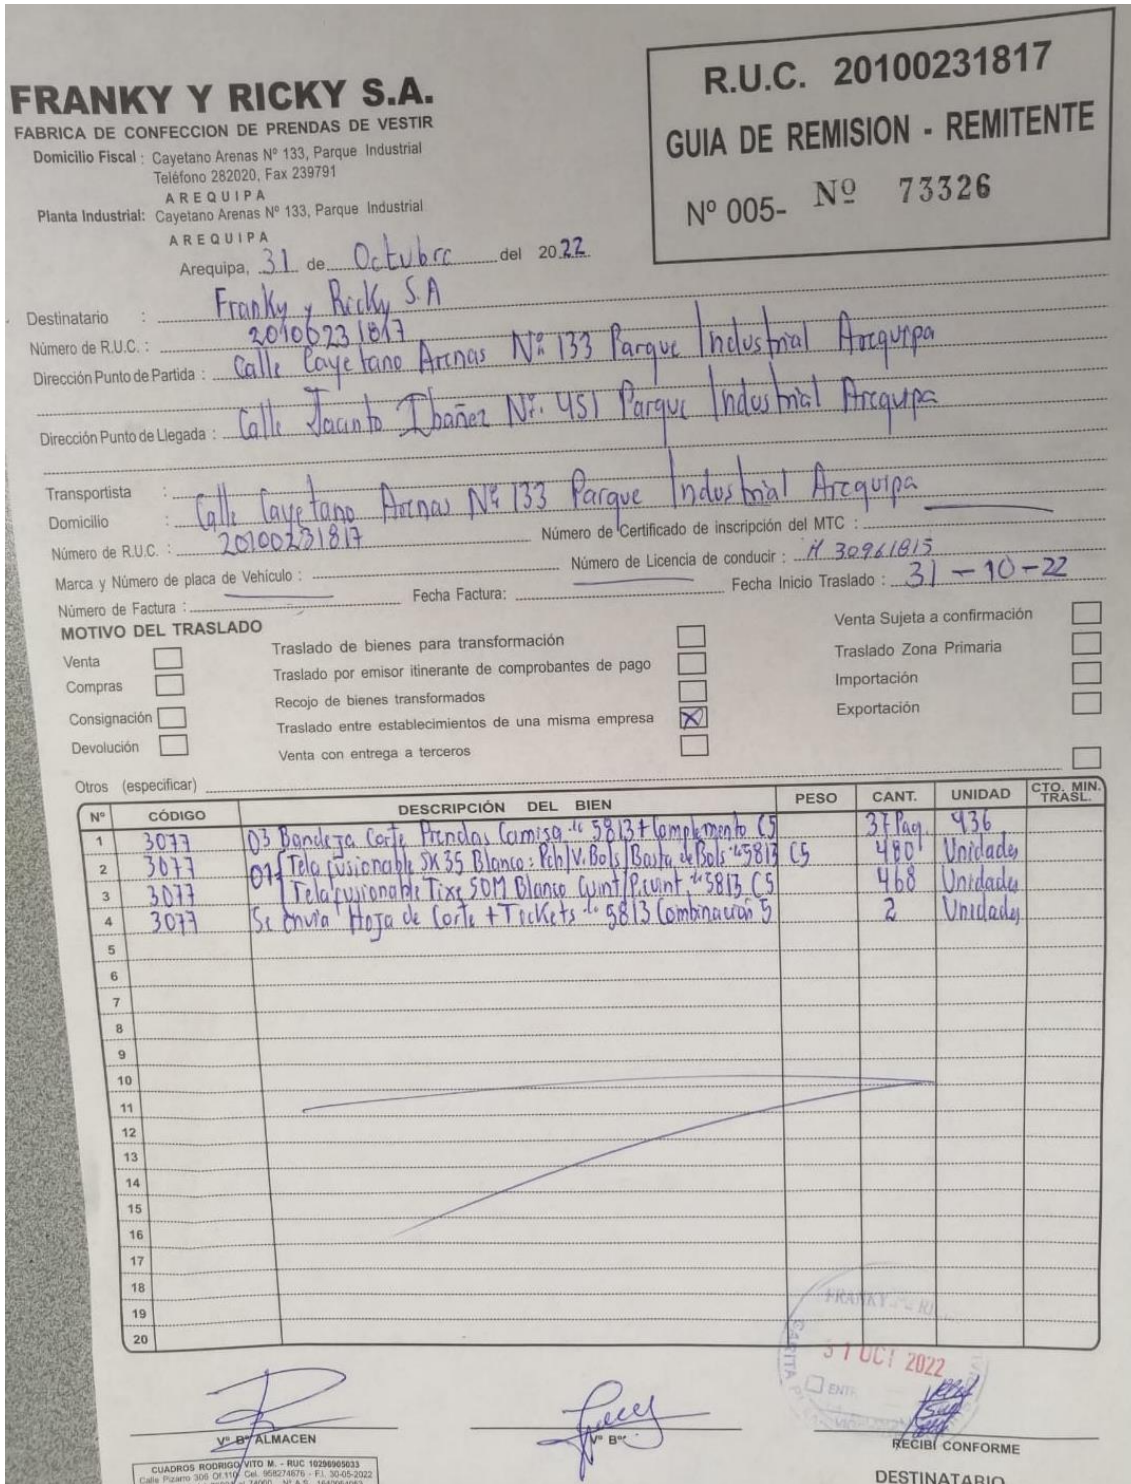 FRANKY Y RICKY S.A.
FABRICA DE CONFECCION DE PRENDAS DE VESTIR
Domicilio Fiscal : Cayetano Arenas Nº 133, Parque Industrial
Teléfono 282020, Fax 239791
AREQUIPA
Planta Industrial: Cayetano Arenas Nº 133, Parque Industrial
AREQUIPA
R.U.C. 20100231817
GUIA DE REMISION - REMITENTE
Nº 005- Nº 73326
Arequipa, 31 de Octubre del 2022
Destinatario : Franky y Ricky S.A
Número de R.U.C. : 20100231817
Dirección Punto de Partida : Calle Cayetano Arenas Nº 133 Parque Industrial Arequipa
Dirección Punto de Llegada : Calle Jacinto Ibañez Nº. 451 Parque Industrial Arequipa
Transportista :
Domicilio : Calle Cayetano Arenas Nº 133 Parque Industrial Arequipa
Número de R.U.C. : 20100231817 Número de Certificado de inscripción del MTC :
Marca y Número de placa de Vehículo : Número de Licencia de conducir : H 30961815
Número de Factura : Fecha Factura: Fecha Inicio Traslado : 31-10-22
MOTIVO DEL TRASLADO
Venta Traslado de bienes para transformación Venta Sujeta a confirmación
Compras Traslado por emisor itinerante de comprobantes de pago Traslado Zona Primaria
Consignación Recojo de bienes transformados Importación
Devolución Traslado entre establecimientos de una misma empresa X Exportación
Venta con entrega a terceros
Otros (especificar)
Nº CÓDIGO DESCRIPCIÓN DEL BIEN PESO CANT. UNIDAD CTO. MIN. TRASL.
1 3077 03 Bandeza Corte Prendas Camisa 5813 + Complemento C5 37 Paq. 436
2 3077 01 Tela fusionable SK 35 Blanco: Pch/V.Bols/Basta de Bols 5813 C5 480 Unidades
3 3077 Tela fusionable Tixe 50M Blanco Cuint/P.cuint. 5813 C5 468 Unidades
4 3077 Se envia Hoja de Corte + Tickets 5813 Combinación 5 2 Unidades
5
6
7
8
9
10
11
12
13
14
15
16
17
18
19
20
FRANKY
31 OCT 2022
Vº Bº ALMACEN
Vº Bº
RECIBÍ CONFORME
CUADROS RODRIGO VITO M. - RUC 10296905033
Calle Pizarro 306 Of.110- Cel. 958274876 - F.I. 30-05-2022
DESTINATARIO